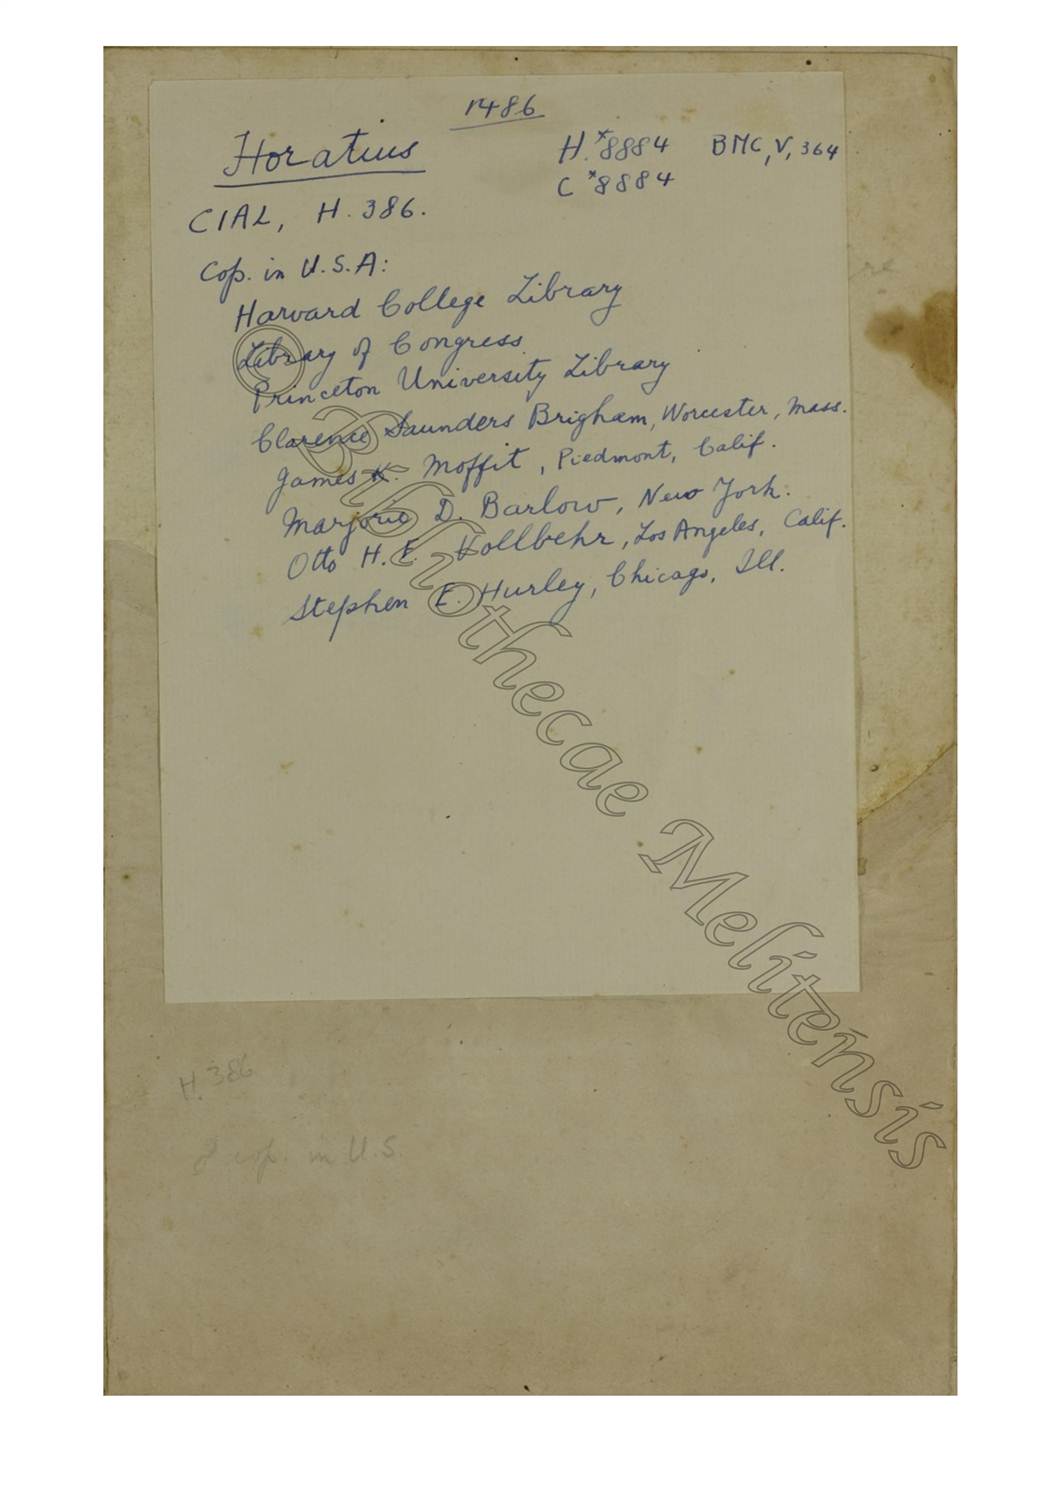 1486
Horatius
H.*8884 BMC, V, 364
C *8884
CIAL, H. 386.
Cop. in U.S.A:
Harvard College Library
Library of Congress
Princeton University Library
Clarence Saunders Brigham, Worcester, Mass.
James K. Moffit, Piedmont, Calif.
Marjorie D. Barlow, New York.
Otto H. F. Vollbehr, Los Angeles, Calif.
Stephen E. Hurley, Chicago, Ill.
© Bibliothecae Melitensis
H. 386
8 cop. in U.S.